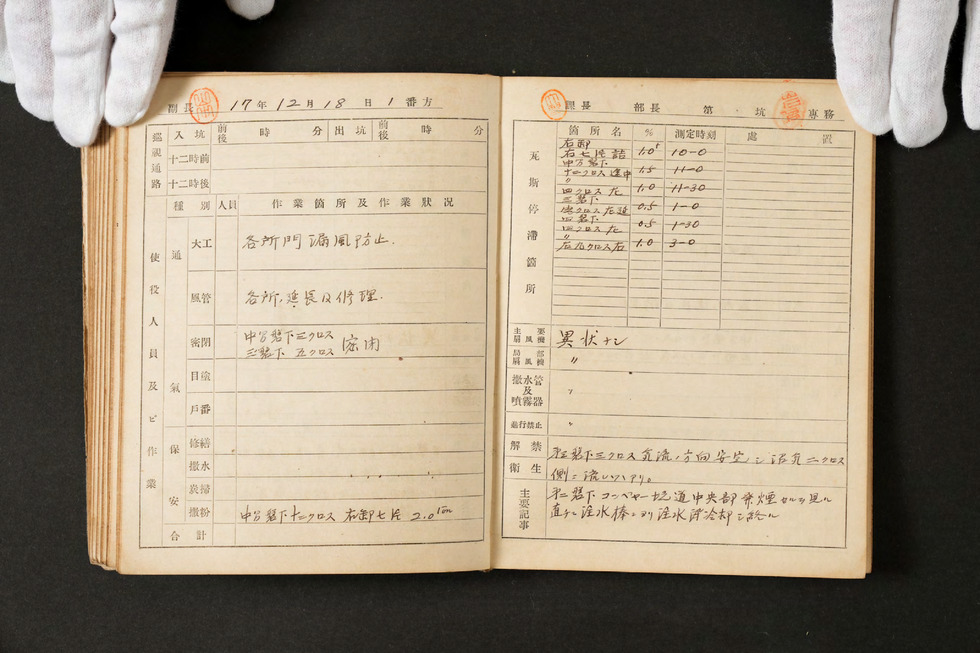 副長 17年12月18日1番方
巡視通路
入坑 前後 時 分 出坑 前後 時 分
十二時前
十二時後
使役人員及ビ作業
種別 人員 作業箇所及作業狀況
通氣
大工 各所門漏風防止.
風管 各所,延長及修理.
密閉 中分盤下三クロス 密閉
三盤下 五クロス
目塗
戶番
保安
修繕
撒水
炭掃
撒粉 中分盤下十二クロス 右卸七片 2.0ton
合計
課長 部長 第 坑 專務
瓦斯停滯箇所
箇所名 % 測定時刻 處置
右卸
右七片詰 1.0 10-0
中分盤下
十二クロス 途中 1.5 11-0
〃
四クロス 左 1.0 11-30
三盤下
クロス 左 0.5 1-0
四盤下
四クロス 左 0.5 1-30
〃
左九クロス右 1.0 3-0
主要扇風機 異狀ナシ
局部扇風機 〃
撒水管及噴霧器 〃
進行禁止 〃
解禁
衛生
盤下三クロス 気流,方向安定シ 二クロス
側ニ流レツヽアリ。
主要記事
盤下コンベヤー坑道中央部 発煙セルヲ見ル
直チニ注水棒ニヨリ注水 冷却シ終ル